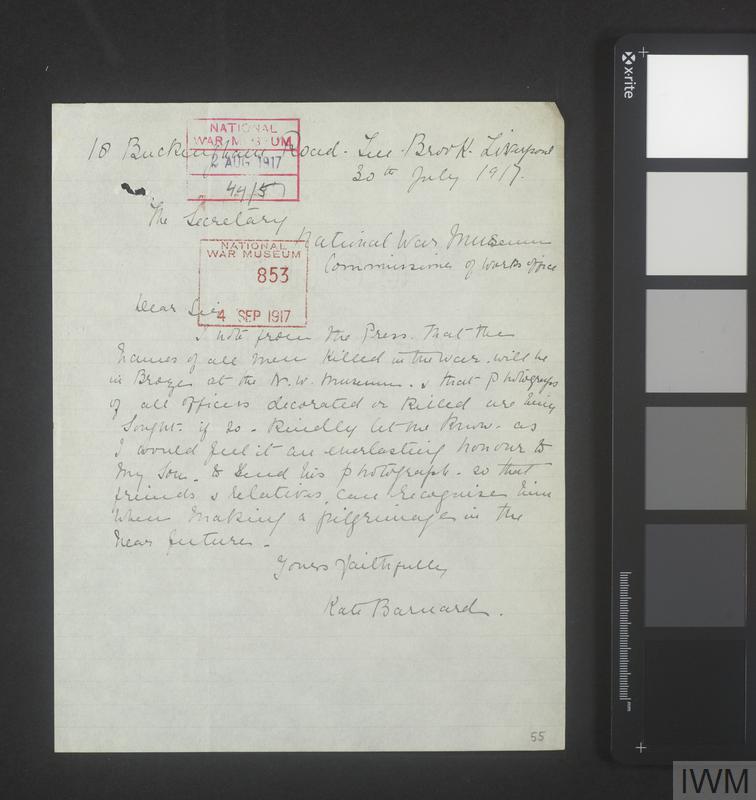 18 Buckingham Road. Tue Brook. Liverpool
30th July 1917.
NATIONAL
WAR MUSEUM
2 AUG 1917
44/5
The Secretary
National War Museum
Commissioner of Works Office
NATIONAL
WAR MUSEUM
853
4 SEP 1917
Dear Sir
I note from the Press. that the
names of all men killed in the War. will be
in Bronze at the N. W. Museum. & that photographs
of all officers decorated or killed are being
sought. if so. kindly let me know. as
I would feel it an everlasting honour to
my son. to send his photograph. so that
freinds & relatives, can recognise him
when making a pilgrimage in the
near future.
Yours faithfully
Kate Barnard.
55
x-rite
mm
IWM